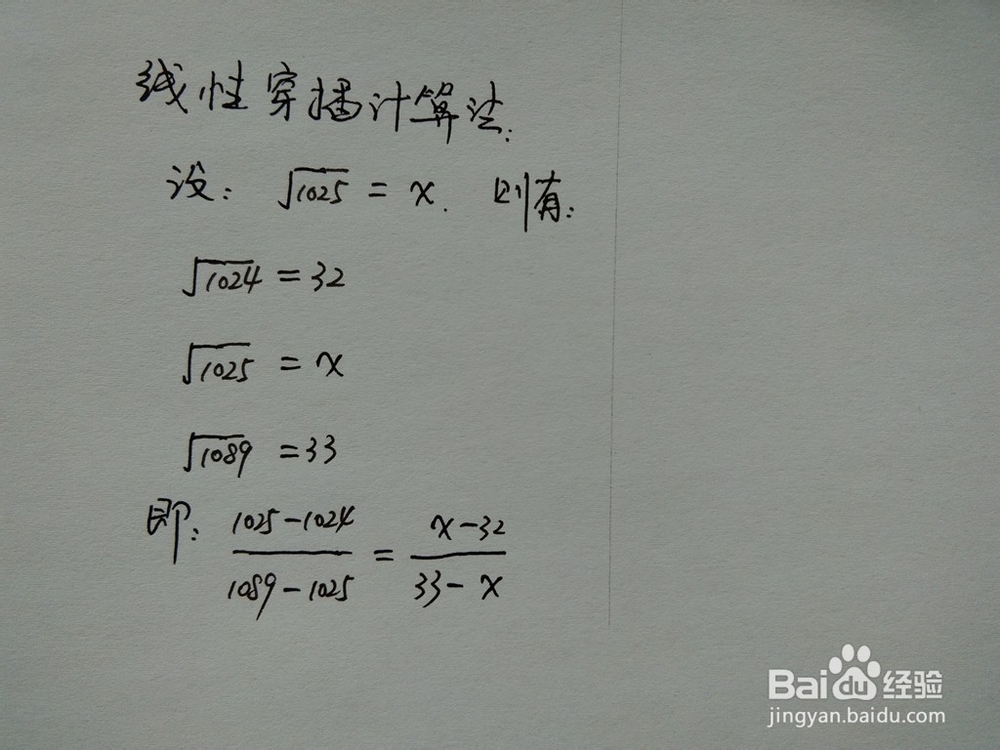 线性穿插计算法:
设: √1025 = x. 则有:
√1024 = 32
√1025 = x
√1089 = 33
即: (1025-1024)/(1089-1025) = (x-32)/(33-x)
Baidu经验
jingyan.baidu.com